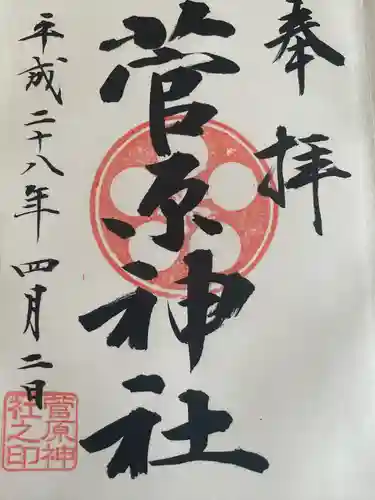 奉拝
菅原神社
平成二十八年四月二日
菅原神
社之印